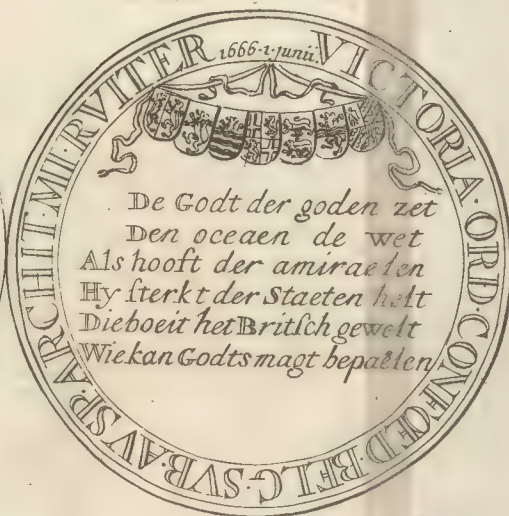 1666·1·junii.
VICTORIA·ORD·CONFŒD·BELG·SVB·AVSP·ARCHIT·MII·RVITER
De Godt der goden zet
Den oceaen de wet
Als hooft der amiraelen
Hy sterkt der Staeten helt
Die boeit het Britsch gewelt
Wie kan Godts magt bepaelen